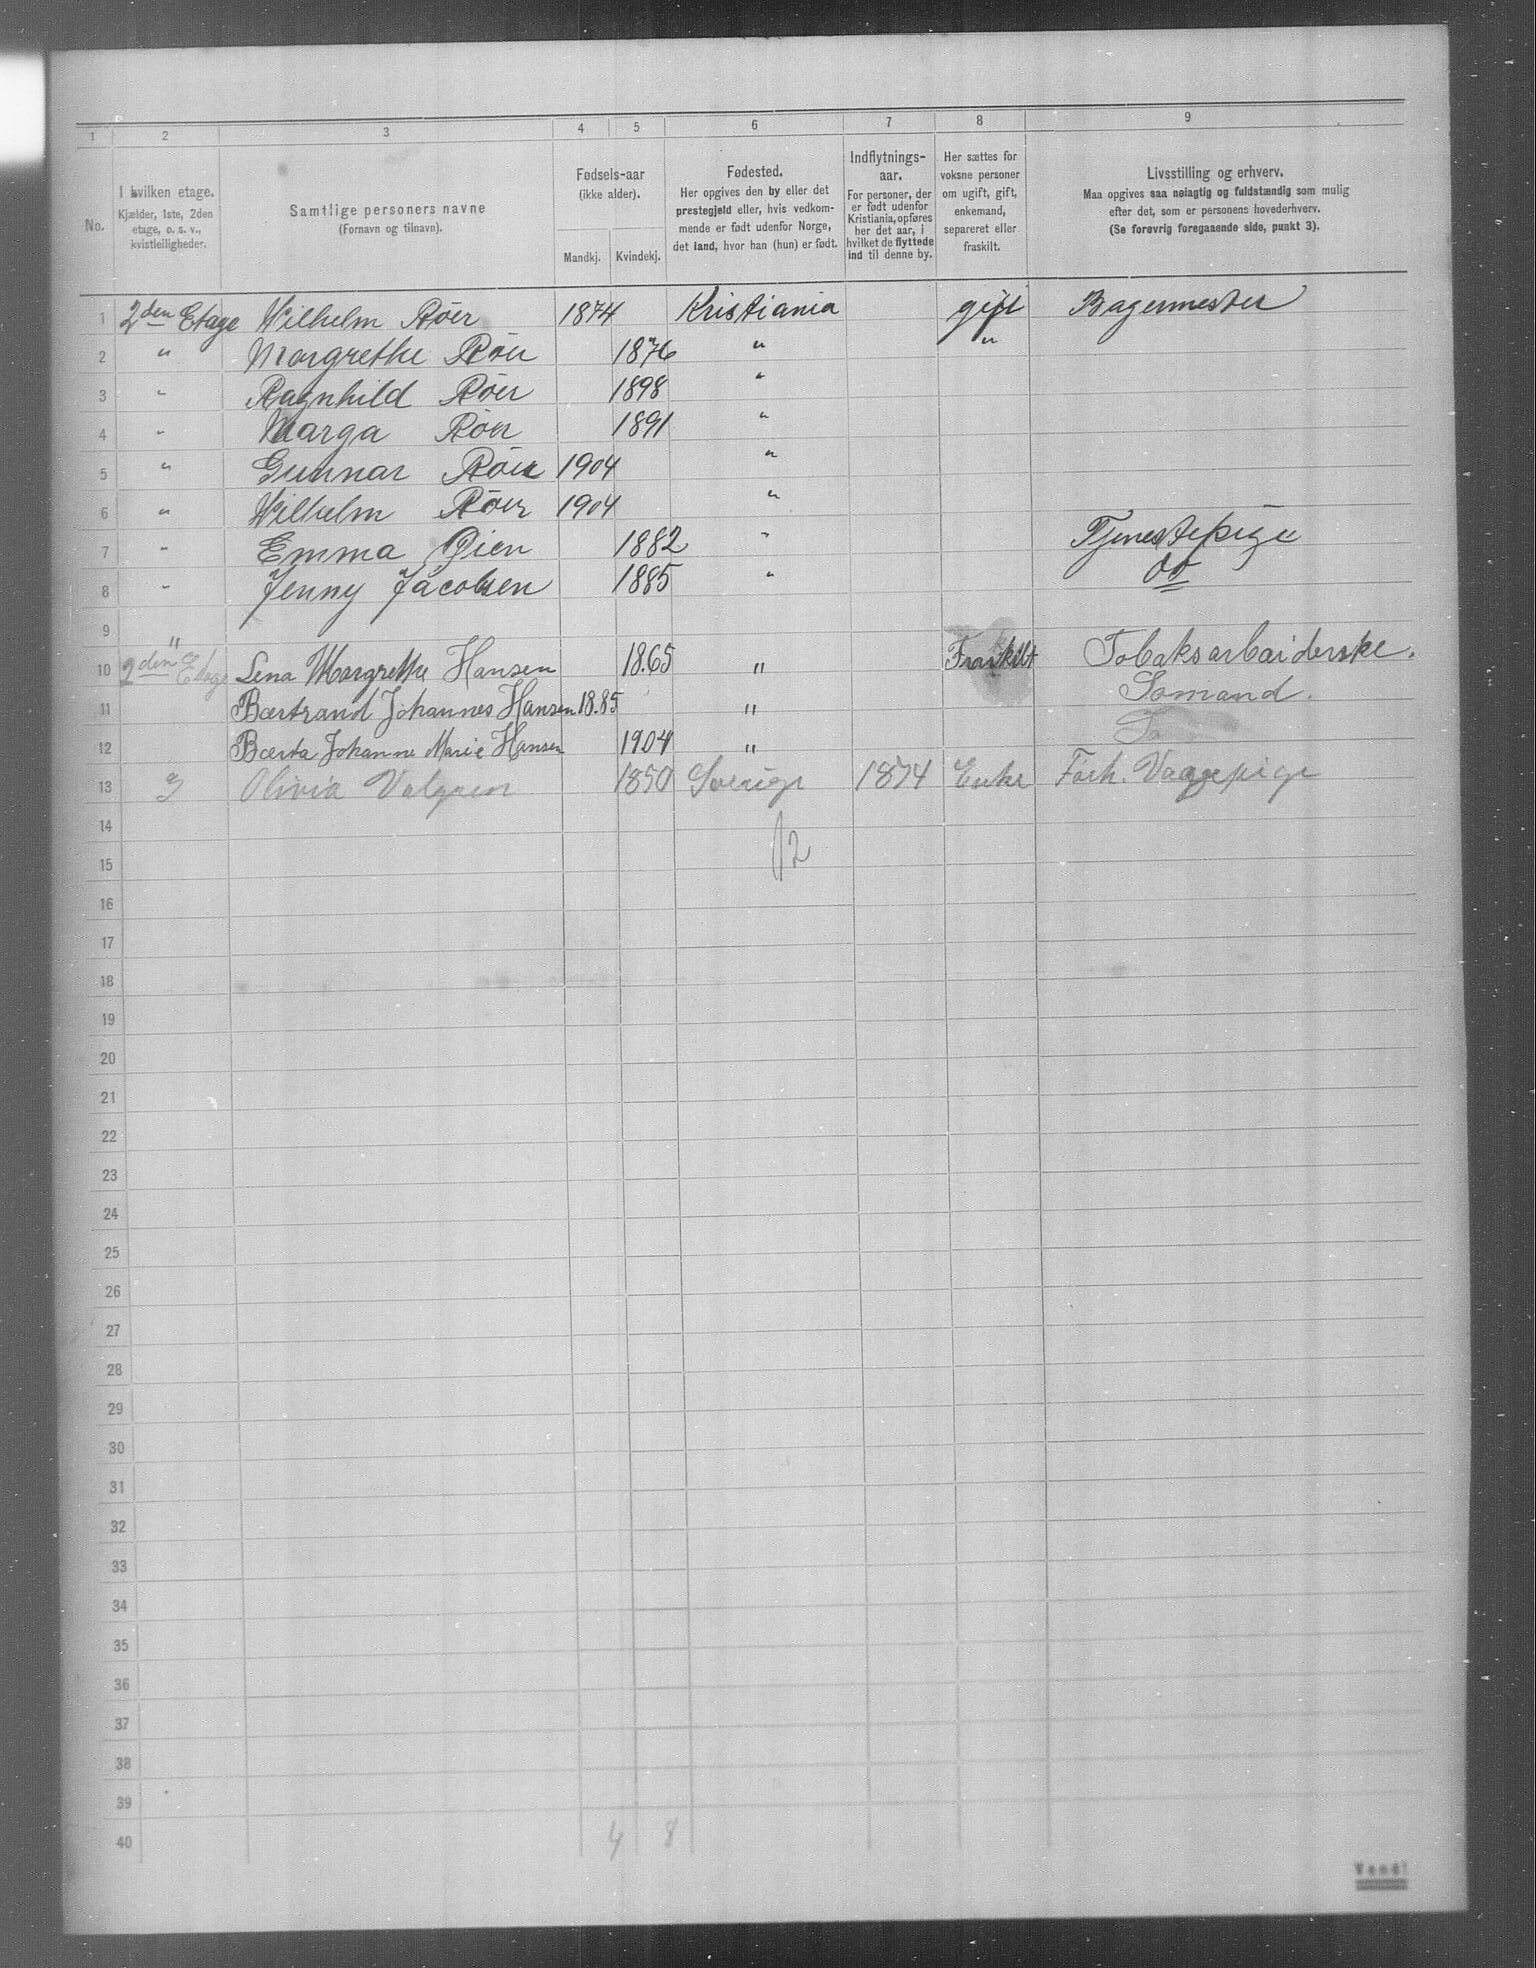 1 2 3 4 5 6 7 8 9
No.
I hvilken etage.
Kjælder, 1ste, 2den
etage, o. s. v.,
kvistleiligheder.
Samtlige personers navne
(Fornavn og tilnavn).
Fødsels-aar
(ikke alder).
Mandkj. Kvindekj.
Fødested.
Her opgives den by eller det
prestegjeld eller, hvis vedkom-
mende er født udenfor Norge,
det land, hvor han (hun) er født.
Indflytnings-
aar.
For personer, der
er født udenfor
Kristiania, opføres
her det aar, i
hvilket de flyttede
ind til denne by.
Her sættes for
voksne personer
om ugift, gift,
enkemand,
separeret eller
fraskilt.
Livsstilling og erhverv.
Maa opgives saa nøiagtig og fuldstændig som mulig
efter det, som er personens hovederhverv.
(Se forøvrig foregaaende side, punkt 3).
1 2den Etage Wilhelm Röer 1874 Kristiania gift Bagermester
2 " Margrethe Röer 1876 " "
3 " Ragnhild Röer 1898 "
4 " Marga Röer 1891 "
5 " Gunnar Röer 1904 "
6 " Wilhelm Röer 1904 "
7 " Emma Øien 1882 " Tjenestepige
8 " Jenny Jacobsen 1885 " do
9 "
10 2den Etage Lena Margrethe Hansen 18.65 " Fraskilt Tobaksarbeiderske.
11 Bærtrand Johannes Hansen 18.85 " Sømand.
12 Bærta Johanne Marie Hansen 1904 "
13 3 Olivia Valgren 1850 Sverige 1874 Enke Forh. Vaagepige
14
12
15
16
17
18
19
20
21
22
23
24
25
26
27
28
29
30
31
32
33
34
35
36
37
38
39
40 4 8
Vend!